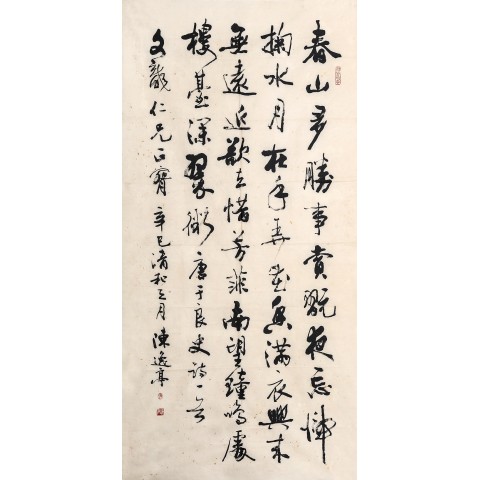 春山多勝事賞翫夜忘歸
掬水月在手弄花香滿衣興來
無遠近欲去惜芳菲南望鐘鳴處
樓臺深翠微 唐于良史詩一首
文 仁兄正 辛巳清和之月 陳逸亭